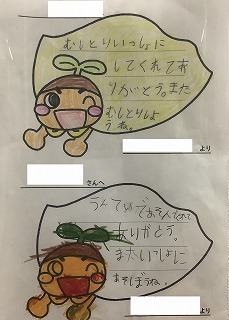 むしとりいっしょに
してくれてあ
りがとう。また
むしとりしよ
うね。
より
さんへ
うんていであそんでくれて
ありがとう。
またいっしょに
あそぼうね。
より